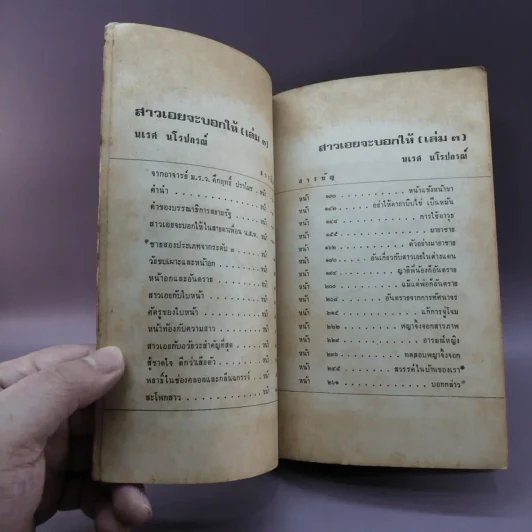 สาวเอยจะบอกให้ (เล่ม ๓)
นเรศ นโรปกรณ์
สารบัญ
"จากอาจารย์ ม.ร.ว. คึกฤทธิ์ ปราโมช . หน้า
คำนำ . . . . . . หน้า
คำของบรรณาธิการสยามรัฐ . . . หน้า
สาวเอยจะบอกให้ในสายตาเพื่อน น.ส.พ. หน้า
"ชายสองประเภทจากระดับ ๑ . . . หน้า
วัยขบเผาะและหน้าอก . . . หน้า
หน้าอกและอันตราย . . . หน้า
สาวเอยกับใบหน้า . . . หน้า
ศัตรูของใบหน้า . . . หน้า
หน้าท้องกับความสาว . . . หน้า
สาวเอยกับอวัยวะสำคัญที่สุด . . . หน้า
สู้ขาดใจ ดีกว่าเสียตัว . . . หน้า
หน้า
สะโพกสาว . . . . . หน้า
สาวเอยจะบอกให้ (เล่ม ๓)
นเรศ นโรปกรณ์
สารบัญ
หน้า . . . . หน้าแข้งหน้าขา
หน้า ๑๔๒ . . . .
หน้า ๑๔๘ . . . . การใช้อาวุธ
หน้า ๑๕๕ . . . . มายาชาย
หน้า ๑๖๒ . . . . ตัวอย่างมายาชาย
หน้า . . . . อันเกี่ยวกับสาวเอยในต่างแดน
หน้า . . . . ญาติพี่น้องก็อันตราย
หน้า ๒๐๐ . . . . แม้แต่พ่อก็อันตราย
หน้า ๒๐๘ . . . . อันตรายจากการทัศนาจร
หน้า ๒๑๕ . . . . แก้การจู่โจม
หน้า ๒๒๒ . . . . พญาจิ้งจอกสารภาพ
หน้า ๒๒๗ . . . . อารมณ์หญิง
หน้า . . . . ทดสอบพญาจิ้งจอก
หน้า ๒๔๕ . . . . สวรรค์ในบ้านของเรา
หน้า ๒๖๑ . . . . บอกกล่าว"